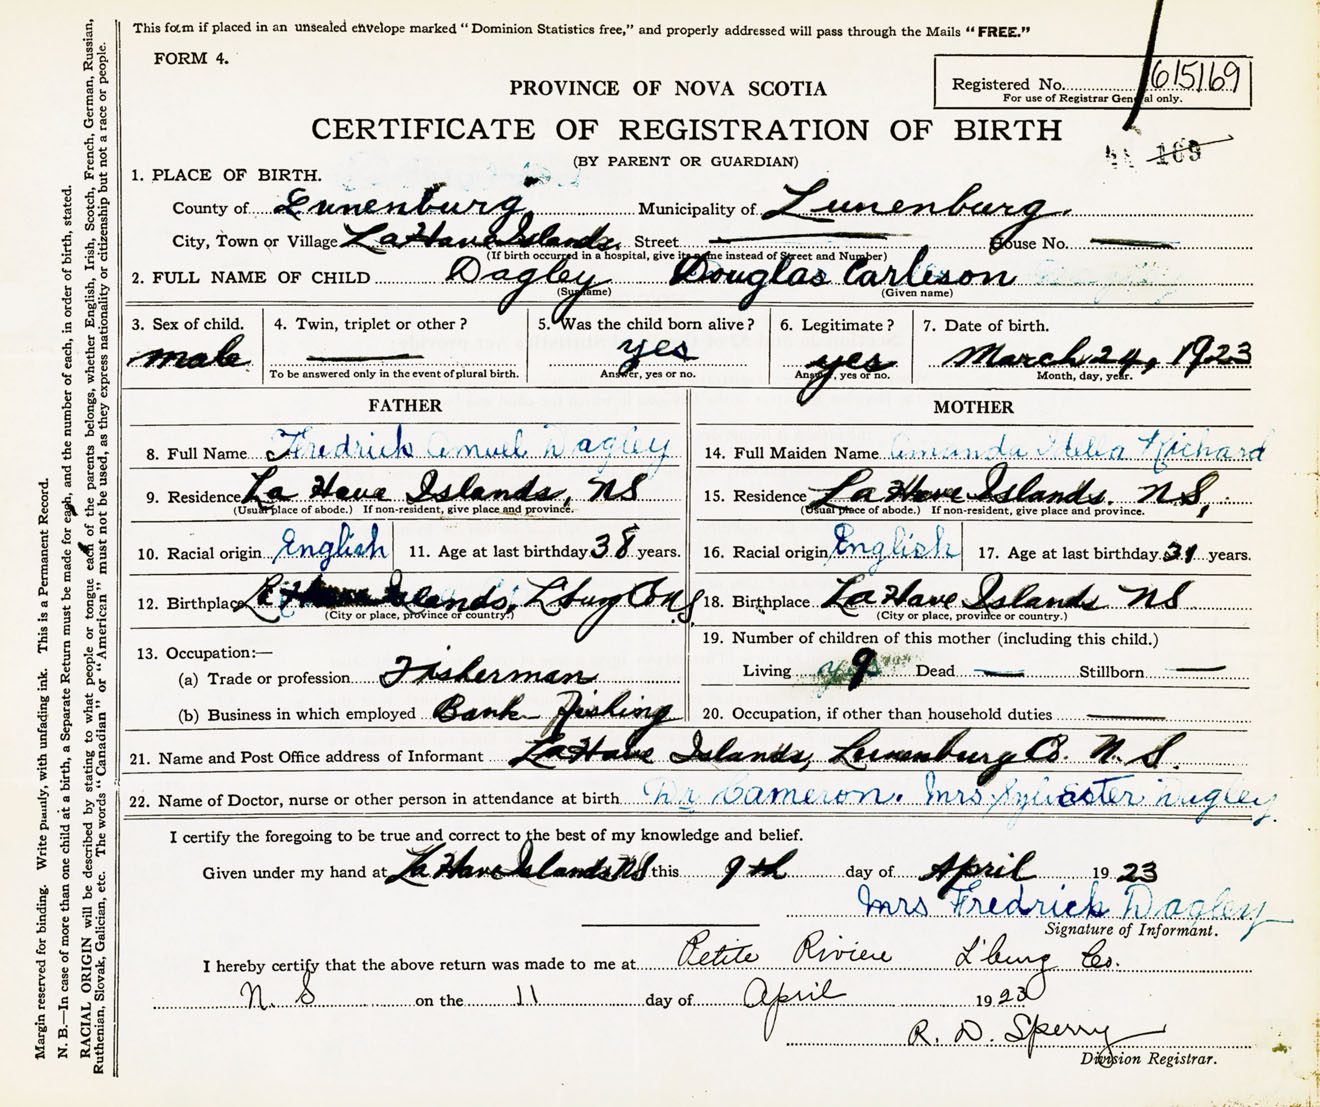 This form if placed in an unsealed envelope marked "Dominion Statistics free," and properly addressed will pass through the Mails "FREE."
FORM 4.
Registered No. 615169
For use of Registrar General only.
PROVINCE OF NOVA SCOTIA
CERTIFICATE OF REGISTRATION OF BIRTH
(BY PARENT OR GUARDIAN)
169
1. PLACE OF BIRTH.
County of Lunenburg Municipality of Lunenburg.
City, Town or Village LaHave Islands. Street — House No. —
(If birth occurred in a hospital, give its name instead of Street and Number)
2. FULL NAME OF CHILD Dagley Douglas Carleson
(Surname) (Given name)
3. Sex of child. 4. Twin, triplet or other? 5. Was the child born alive? 6. Legitimate? 7. Date of birth.
male — yes yes March 24, 1923
To be answered only in the event of plural birth. Answer, yes or no. Answer, yes or no. Month, day, year.
FATHER MOTHER
8. Full Name Fredrick Amuel Dagley 14. Full Maiden Name Amanda Idella Richard
9. Residence La Have Islands, NS 15. Residence La Have Islands. N S,
(Usual place of abode.) If non-resident, give place and province. (Usual place of abode.) If non-resident, give place and province.
10. Racial origin English 11. Age at last birthday 38 years. 16. Racial origin English 17. Age at last birthday 31 years.
12. Birthplace Islands, L'burg Co NS 18. Birthplace La Have Islands NS
(City or place, province or country.) (City or place, province or country.)
13. Occupation:— 19. Number of children of this mother (including this child.)
(a) Trade or profession Fisherman Living 9 Dead — Stillborn —
(b) Business in which employed Bank Fishing 20. Occupation, if other than household duties —
21. Name and Post Office address of Informant LaHave Islands, Lunenburg Co. N. S.
22. Name of Doctor, nurse or other person in attendance at birth Dr Cameron. Mrs Sylvester Dagley.
I certify the foregoing to be true and correct to the best of my knowledge and belief.
Given under my hand at La Have Islands NS this 9th day of April 1923
Mrs Fredrick Dagley
Signature of Informant.
I hereby certify that the above return was made to me at Petite Riviere L'burg Co.
N. S on the 11 day of April 1923
R. D. Sperry
Division Registrar.
Margin reserved for binding. Write plainly, with unfading ink. This is a Permanent Record.
N. B.—In case of more than one child at a birth, a Separate Return must be made for each, and the number of each, in order of birth, stated.
RACIAL ORIGIN will be described by stating to what people or tongue each of the parents belongs, whether English, Irish, Scotch, French, German, Russian,
Ruthenian, Slovak, Galician, etc. The words "Canadian" or "American" must not be used, as they express nationality or citizenship but not a race or people.